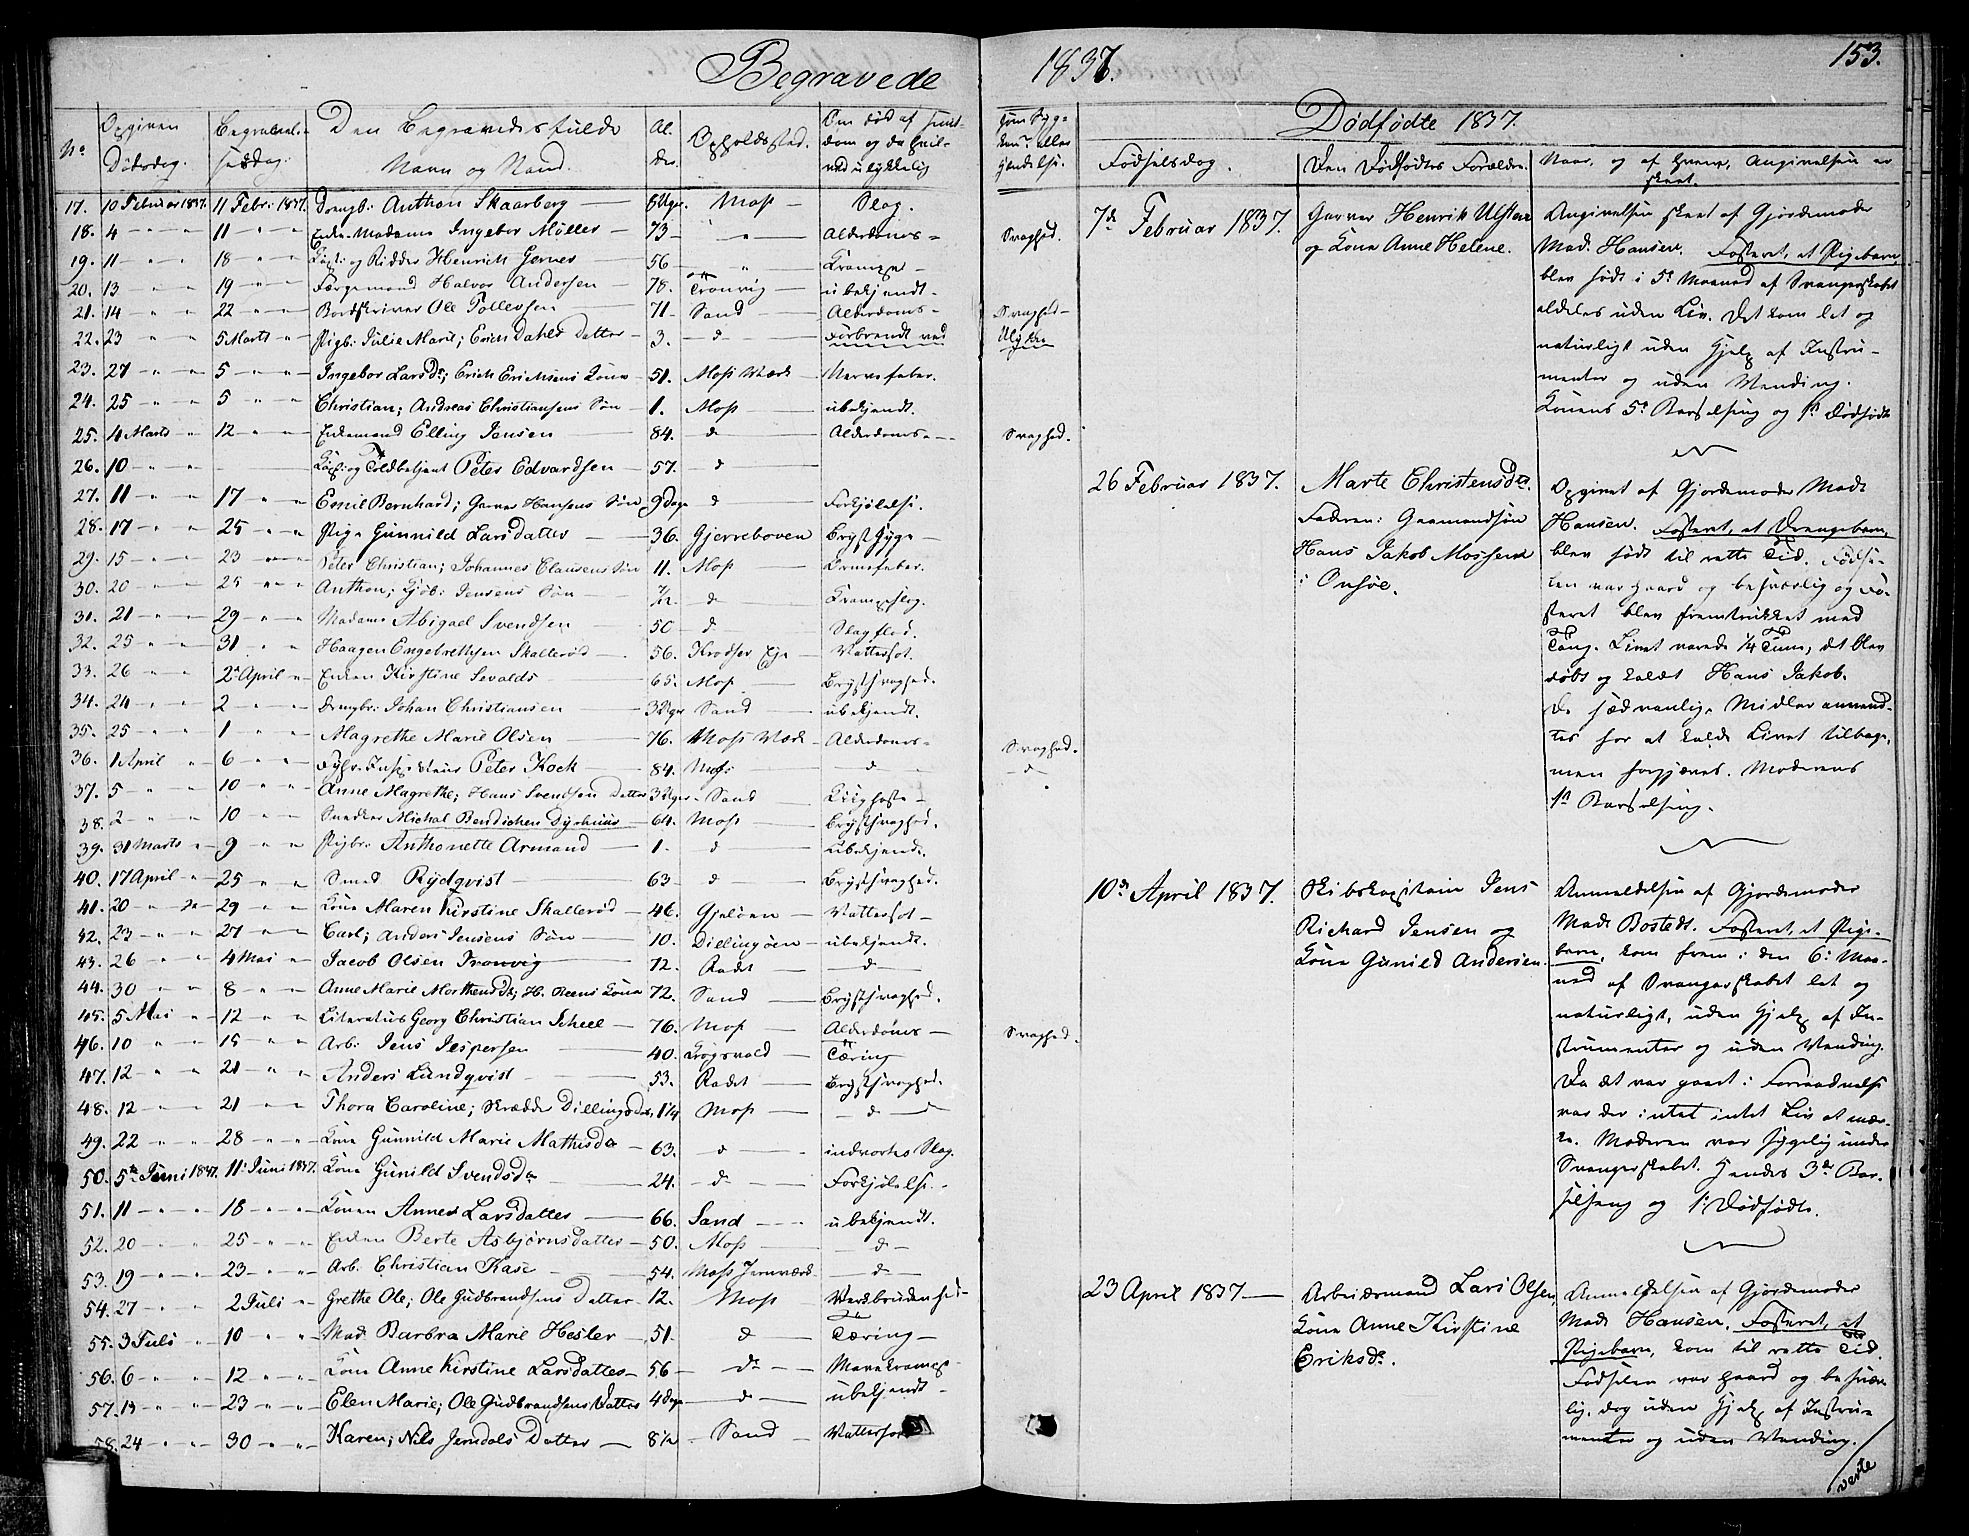 Begravede 1837.
153.
No
Opgiven Dødsdag.
Begravelsesdag.
Den Begravedes fulde Navn og Stand.
Alder.
Opholdssted.
Dødfødte 1837.
Fødselsdag.
Den Dødfødtes Forældre.
Naar, og af hvem, Angivelsen er skeet.
17. 10 Februar 1837. 11 Febr: 1837. Drengb: Anthon Skaarberg — 8 Uger Moss — Slag.
18. 4 " " 11 " " Enke Madame Ingebor Møller — 73 — " Alderdoms- Svaghed.
19. 11 " " 18 " " og Ridder Henrich Gerner — 56 — " Krampe —
20. 13 " " 19 " " Færgemand Halvor Andersen — 78. Tronvig — ubekjendt.
21. 14 " " 22 " " Bordskriver Ole Tollevsen 71. Sand — Alderdoms- Svaghed —
22. 23 " " 5 Marts " Pigb: Julie Marie; Erich Dahls Datter 3. d Forbrændt ved Ulykke
23. 27 " " 5 " " Ingebor Larsdr; Erich Erichsens Kone 51. Moss Værk Nervefeber.
24. 25 " " 5 " " Christian; Andreas Christiansens Søn 1. Moss — ubekjendt.
25. 4 Marts " 12 " " Enkemand Elling Jensen — 84. d Alderdoms- Svaghed.
26. 10 " " — Toldbetjent Peter Edvardsen — 57. d
27. 11 " " 17 " " Emil Bernhard; Garver Hansens Søn 9 Dage d Forkjølelse.
28. 17 " " 25 " " Pige Gunnild Larsdatter — 36. Gjerreboven Brystsyge —
29. 15 " " 23 " " Peter Christian; Johannes Clausens Søn 11. Moss Ormefeber.
30. 20 " " 25 " " Anthon; Jensens Søn d Krampeslag.
31. 21 " " 29 " " Madame Abigael Svendsen 50 — d Slagflod.
32. 25 " " 31 " " Haagen Engebrethsen Skallerød — 56. Krodser Eje Vattersot.
33. 26 " " 2 April " Enken Kirstine Sevalds — 65. Moss Brystsvaghed.
34. 24 " " 2 " " Drengbr: Johan Christiansen — 3 Uger Sand — ubekjendt.
35. 25 " " 1 " " Magrethe Marie Olsen — 76. Moss Værk Alderdoms- Svaghed.
36. 1 April " 6 " " Peter Kock — 84. Moss — d — d
37. 5 " " 10 " " Anne Magrethe; Hans Svendsen Datter 3 Uger Sand — Kighoste —
38. 2 " " 10 " " Snedker Michal Bendichsen Dyrhuus — 64. Moss — Brystsvaghed.
39. 31 Marts " 9 " " Pigbr: Anthonette Armand — 1. d Ubekjendt.
40. 17 April " 25 " " Smed Rydqvist — 63 — d — Brystsvaghed.
41. 20 " " 29 " " Kone Maren Kirstine Skallerød — 46. Gjeløen — Vattersot —
42. 23 " " 27 " " Carl; Anders Jensens Søn — 10. Dillingøen — ubekjendt.
43. 26 " " 4 Mai " Jacob Olsen Tronvig — 72. Radet — d —
44. 30 " " 8 " " Anne Marie Morthensdr; H. Reens Kone 72. Sand — Brystsvaghed.
45. 5 Mai " 12 " " Literatus Georg Christian Scheel — 76. Moss — Alderdoms — Svaghed.
46. 10 " " 15 " " Arb: Jens Jespersen — 40. Krogsvold — Tæring
47. 12 " " 21 " " Anders Lundqvist — 53. Radet — Brystsvaghed.
48. 12 " " 21 " " Thora Caroline; Skrædder Dillings Dr. 1¼ Moss — d —
49. 22 " " 28 " " Kone Gunnild Marie Mathisdr 63. d — indvortes Slag.
50. 5te Juni 1837. 11 Juni 1837. Kone Gunild Svendsdr 24. d — Forkjølelse.
51. 11 " " 18 " " Konen Anne Larsdatter — 66. Sand — ubekjendt.
52. 20 " " 25 " " Enken Berte Asbjørnsdatter — 50. Moss — d —
53. 19 " " 23 " " Arb. Christian Kase — 54. Moss Jernværk — d —
54. 27 " " 2 Juli " Grethe Ole; Ole Gudbrandsens Datter — 12. Moss
55. 3 Juli " 10 " " Mad. Barbra Marie Hesler — 51. d — Tæring —
56. 6 " " 12 " " Kone Anne Kirstine Larsdatter — 56 — do —
57. 13 " " 23 " " Elen Marie; Ole Gudbrandsens Datter 4 Dage d — ubekjendt —
58. 24 " " 30 " " Karen; Nils Jerndals Datter — 8½ Sand — Vattersot
7de Februar 1837.
Garver Henrik Ulsten
og Kone Anne Helene.
Angivelsen skeet af Gjordemoder
Mad. Hansen. Fosteret, et Pigebarn,
blev født i 5te Maaned af Svangerskabet
aldeles uden Liv. Det kom let og
naturligt uden Hjelp af Instru-
menter og uden Vending.
Konens 5te Barselseng og 1ste Dødfødte
26 Februar 1837.
Marte Christensdr.
Faderen: Gaardmandssøn
Hans Jakob Mossen
i Onsøe.
Opgivet af Gjordemoder Mad.
Hansen. Fosteret, et Drengebarn,
blev født til rette Tid. Fødse-
len var haard og besværlig og Fo-
steret blev fremtrukket med
Tang. Livet varede ¼ Time, det blev
døbt og kaldt Hans Jakob.
De sædvanlige Midler anvend-
tes for at kalde Livet tilbage,
men forgjæves. Moderens
1ste Barselseng.
10de April 1837.
Skibskapitain Jens
Richard Jensen og
Kone Gunild Andersen.
Anmeldelsen af Gjordemoder
Mad. Bostedt. Fosteret, et Pige-
barn, kom frem i den 6te Maa-
ned af Svangerskabet let og
naturligt, uden Hjelp af In-
strumenter og uden Vending.
Da det var gaaet i Forraadnelse
var der intet intet Liv at mær-
ke. Moderen var sygelig under
Svangerskabet. Hendes 3de Bar-
selseng og 1ste Dødfødte.
23 April 1837 —
Arbeidsmand Lars Olsen,
Kone Anne Kirstine
Eriksdr.
Anmeldelsen af Gjordemoder
Mad. Hansen, Fosteret, et
Pigebarn, kom til rette Tid.
Fødselen var haard og besvær-
lig, dog uden Hjelp af Instru-
menter og uden Vending.
verte